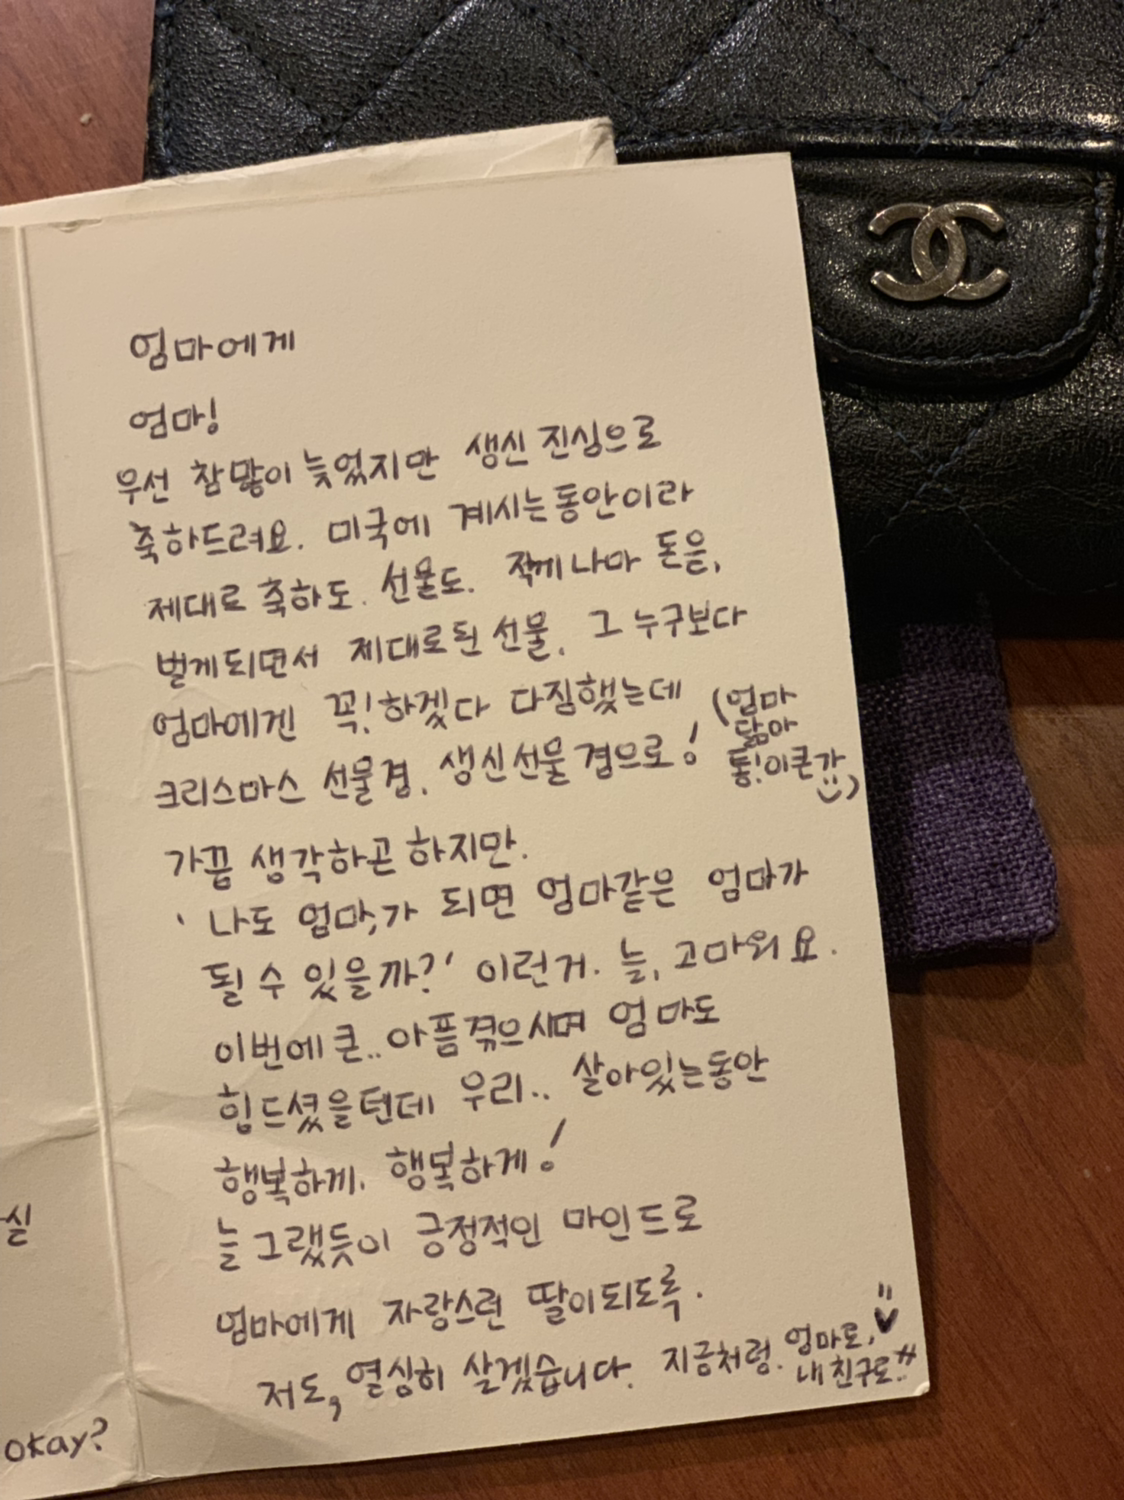 엄마에게
엄마!
우선 참 많이 늦었지만 생신 진심으로
축하드려요. 미국에 계시는동안이라
제대로 축하도. 선물도. 작게나마 돈을,
벌게되면서 제대로된 선물. 그 누구보다
엄마에겐 꼭! 하겠다 다짐했는데
크리스마스 선물겸. 생신선물 겸으로!
(엄마
닮아
통!이큰가
)
가끔 생각하곤 하지만.
' 나도 엄마,가 되면 엄마같은 엄마가
될 수 있을까?' 이런거. 늘, 고마워요.
이번에 큰.. 아픔겪으시며 엄마도
힘드셨을텐데 우리.. 살아있는동안
행복하게. 행복하게!
늘 그랬듯이 긍정적인 마인드로
엄마에게 자랑스런 딸이되도록.
저도, 열심히 살겠습니다. 지금처럼. 엄마로,
내 친구로..
실
okay?